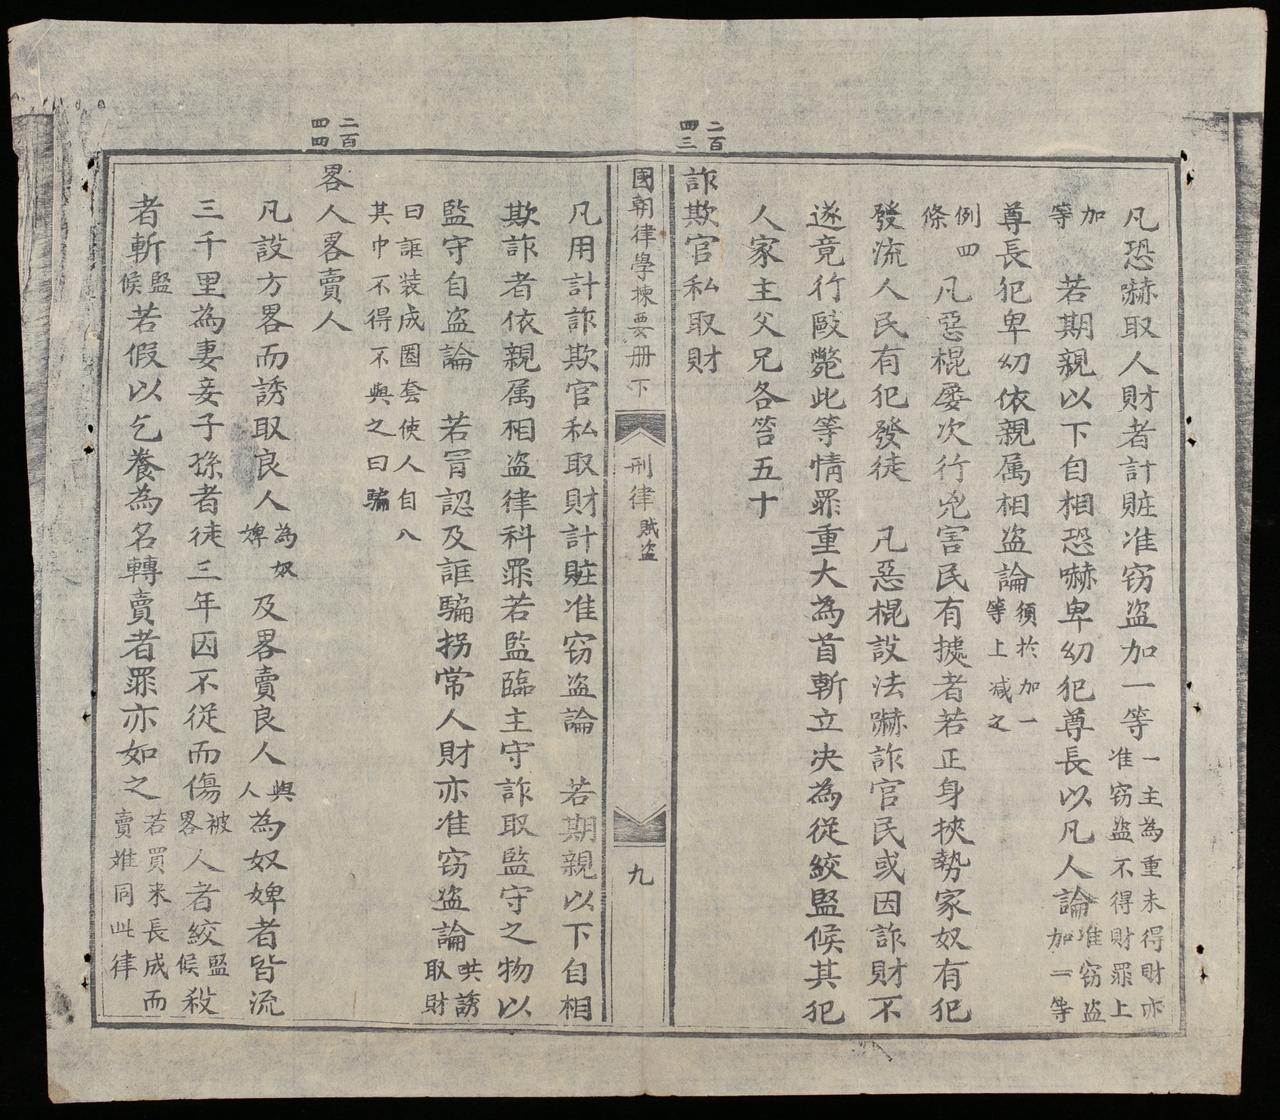 凡恐嚇取人財者計賍准窃盗加一等一主為重未得財亦准窃盗不得財罪上
加等 若期親以下自相恐嚇卑幼犯尊長以凡人論准窃盗加一等
尊長犯卑幼依親属相盗論須於加一等上减之
例四條 凡惡棍屡次行兇害民有據者若正身挾勢家奴有犯
發流人民有犯發徒 凡惡棍設法嚇詐官民或因詐財不
遂竟行毆斃此等情罪重大為首斬立决為從絞監候其犯
人家主父兄各笞五十
二百四三
詐欺官私取財
國朝律學揀要册下 刑律賊盗 九
凡用計詐欺官私取財計賍准窃盗論 若期親以下自相
欺詐者依親属相盗律科罪若監臨主守詐取監守之物以
監守自盗論 若冐認及誆騙拐常人財亦准窃盗論哄誘取財
曰誆装成圈套使人自入其中不得不與之曰騙
二百四四
畧人畧賣人
凡設方畧而誘取良人為奴婢及畧賣良人與人為奴婢者皆流
三千里為妻妾子孫者徒三年因不從而傷被畧人者絞監候殺
者斬監候若假以乞養為名轉賣者罪亦如之若買来長成而賣难同此律